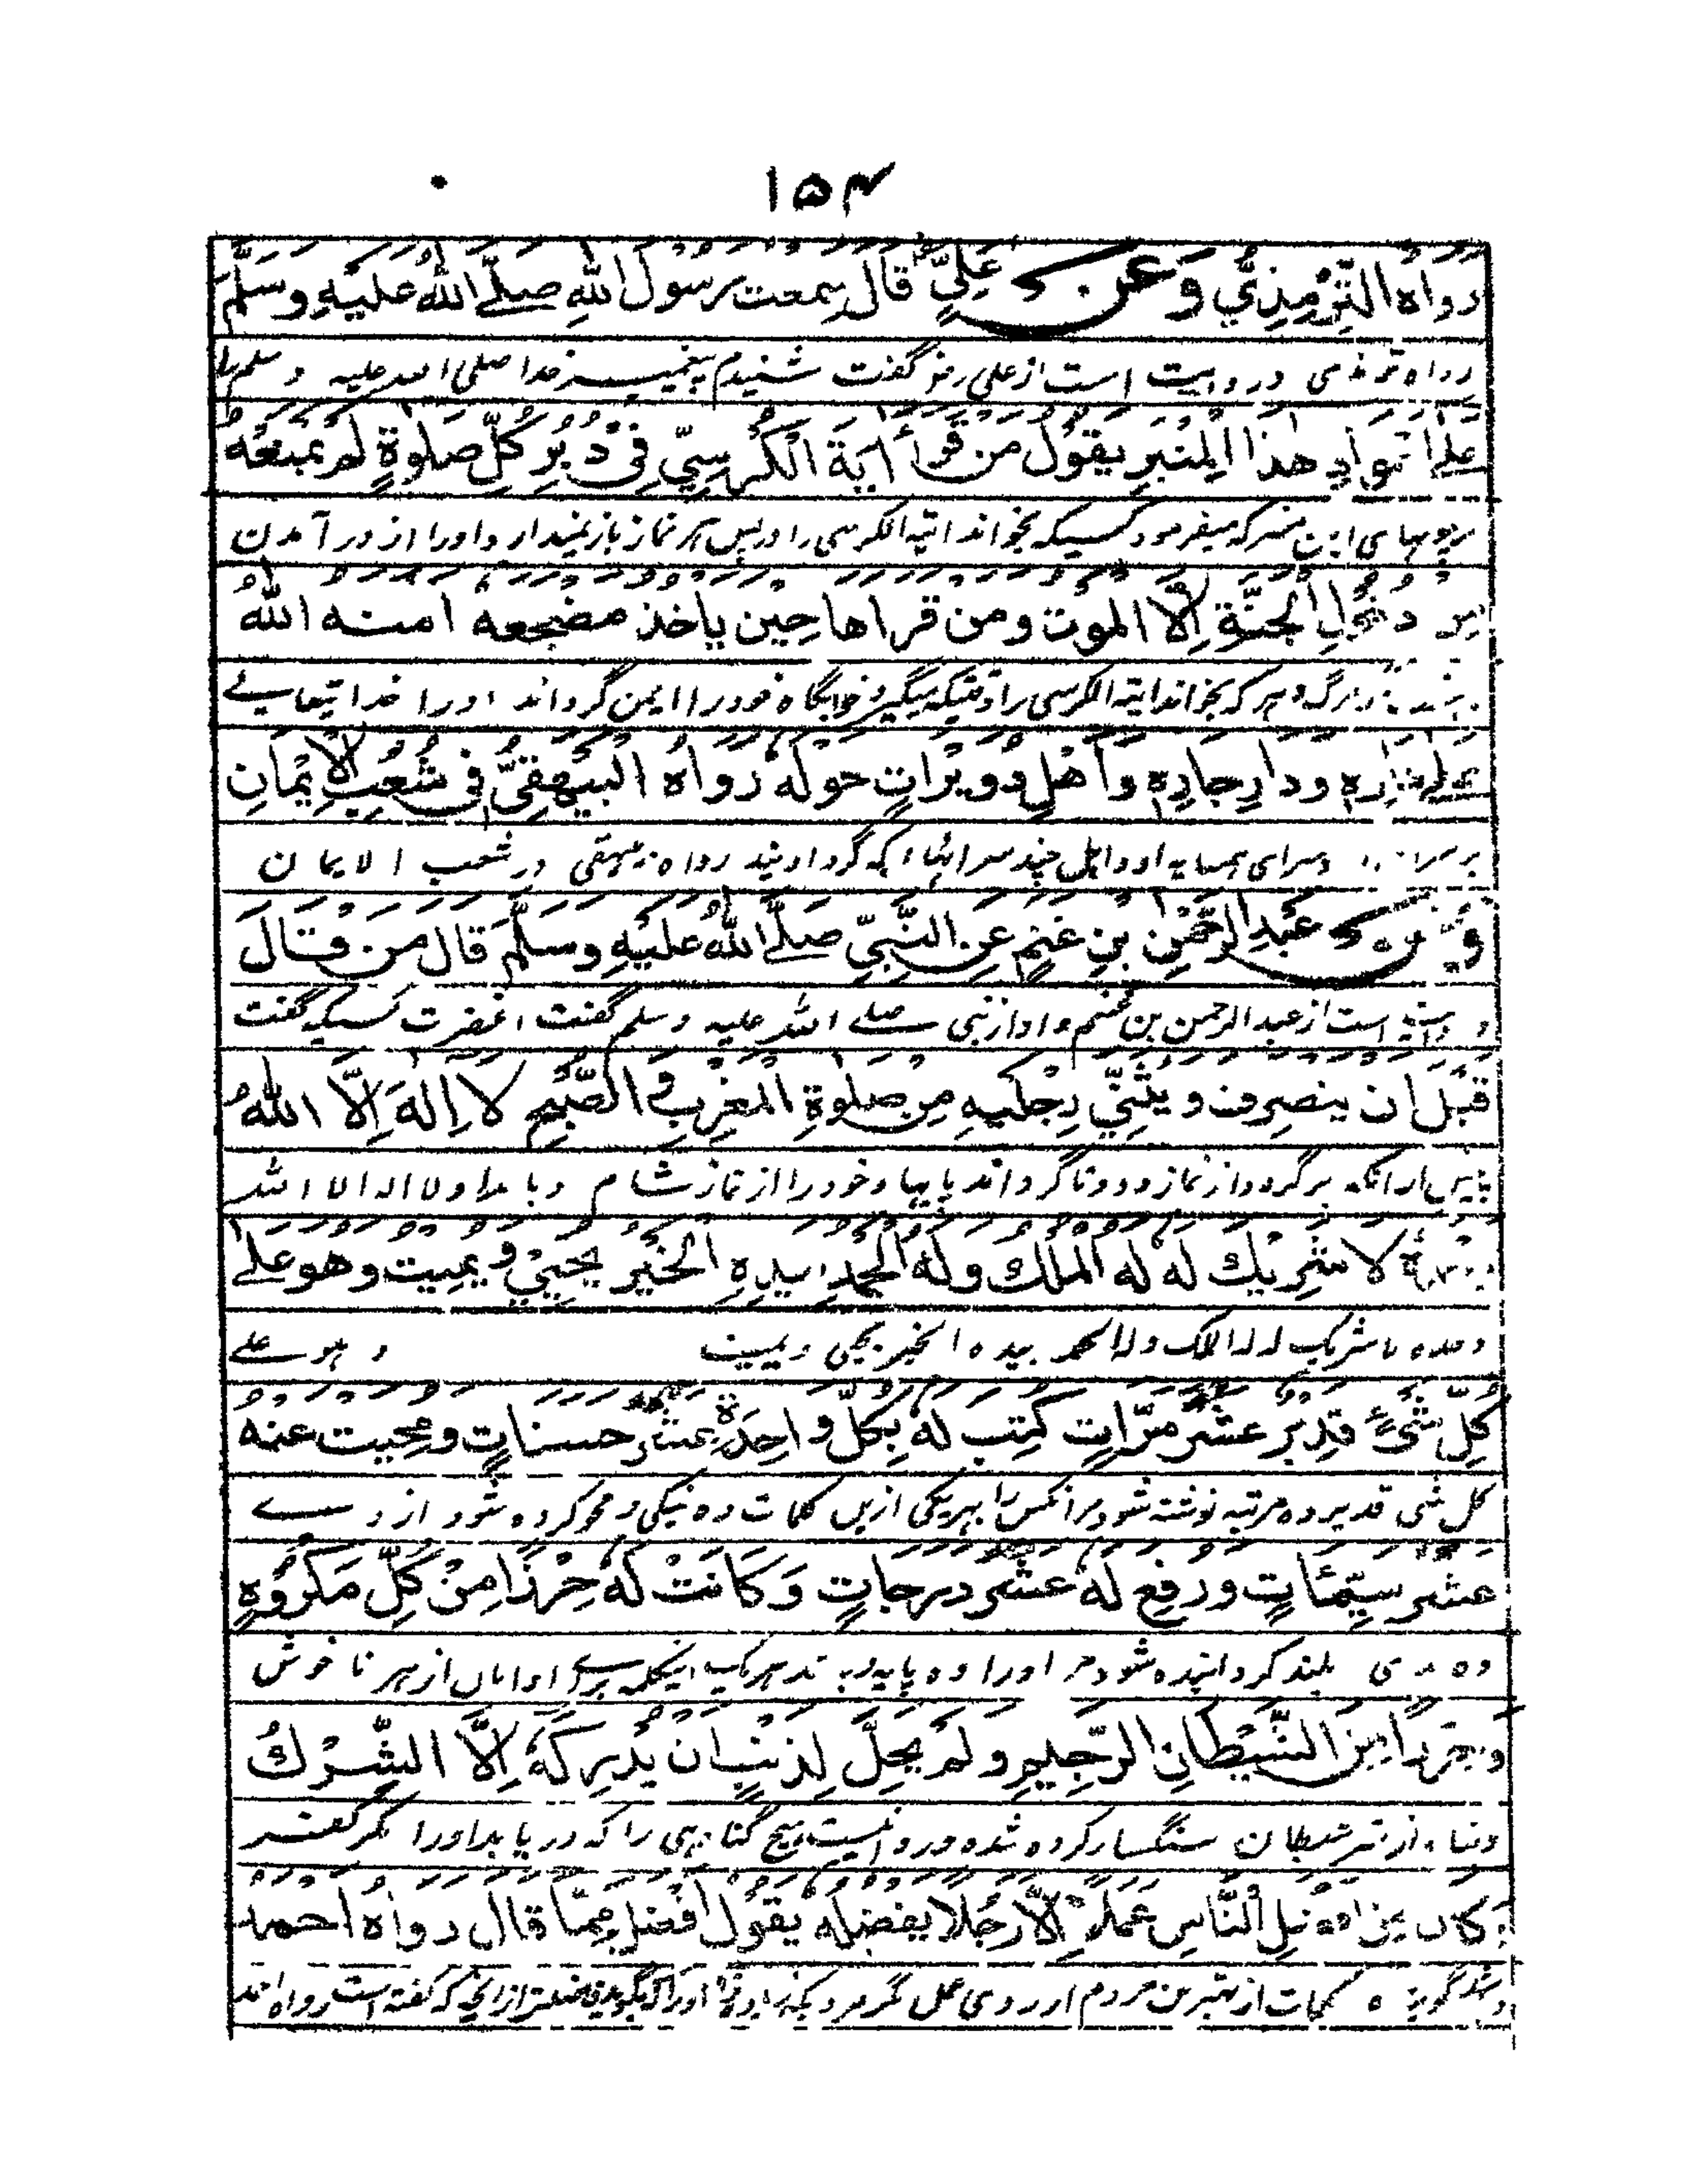 ۱۵۴
رَوَاهُ التِّرْمِذِيُّ وَعَنْ عَلِيٍّ قَالَ سِمعت رسُولَ اللهِ صلّے اللهُ عليْهِ وسلَّمَ
رواه ترمذی و روایت است از علی رضو گفت شنیدم پیغمبر خدا صلی الله علیه و سلم را
علے اعوادِ هٰذا المِنْبَرِ يقولُ من قرأ اٰيةَ الْكُرْسِيِّ فِيْ دُبُرِ كُلِّ صلوٰةٍ لم يمنعْهُ
بر چوبهای این منبر که میفرمود کسیکه بخواند آیة الکرسی را در پس هر نماز باز نمیدارد او را از در آمدن
مِن دخولِ الجنَّةِ اِلَّا الموت ومن قراها حِين ياخذ مضجعه امنه اللهُ
مرگ و هر که بخواند آیة الکرسی را وقتیکه بگیرد خوابگاه خود را ایمن گرداند او را خدا تیعالے
علے دارِهٖ ودارِ جارِهٖ وأهْلِ دويْراتٍ حوله رواهُ البيْهقِيُّ فِي شُعبِ الْاِيْمانِ
بر سرای و سرای همسایه او و اهل چند سرائها که گرد اویند رواه بیهقی در شعب الایمان
وَعَنْ عَبْدِ الرَّحْمٰنِ بنِ غنمٍ عنِ النَّبِيِّ صلّے اللهُ عليْهِ وسلَّمَ قال من قَالَ
و روایت است از عبد الرحمن بن غنم و او از نبی صلے الله علیه و سلم گفت آنحضرت کسیکه گفت
قبْلَ ان ينصرِف ويثْنِيَ رِجْليْهِ مِن صلوٰةِ المغْرِبِ والصُّبْحِ لا اِلٰهَ اِلَّا اللهُ
پیش از آنکه برگردد از نماز و دوتا گرداند پایها خود را از نماز شام و بامداد لا اله الا الله
وحْدهٗ لا شرِيْك له له الْملك وله الحمد بيدهِ الخيْر يحْيِيْ ويمِيت وهو علے
وحده لا شریک له له الملک و له الحمد بیده الخیر یحیی و یمیت و هو علے
كُلِّ شيْءٍ قدِيْر عشر مرّاتٍ كتِب له بِكلِّ واحِدةٍ عشر حسناتٍ ومحِيت عنه
کل شی قدیر ده مرتبه نوشته شود مر آنکس را بهر یکی ازین کلمات ده نیکی و محو کرده شود از وے
عشر سيِّئاتٍ ورفِع له عشر درجاتٍ وَكَانَتْ لَهٗ حِرْزًا مِنْ كُلِّ مَكْرُوْهٍ
ده بدی بلند گردانیده شود مر او را ده پایه و باشد هر یک اینکلمه برای او امان از هر ناخوش
وحِرْزًا مِن الشَّيْطانِ الرَّجِيْمِ ولم يحِلَّ لِذنْبٍ ان يدْرِكهٗ اِلَّا الشِّرْكُ
و پناه از شر شیطان سنگسار کرده شده و روا نیست هیچ گناهی را که دریابد او را مگر کفر
وكان مِن افضلِ النَّاسِ عَملًا اِلَّا رجُلًا يفضله يقول افْضل مِمّا قال رواه احمد
کلمات از بهترین مردم از روی عمل مگر مرد که گفته است رواه احمد